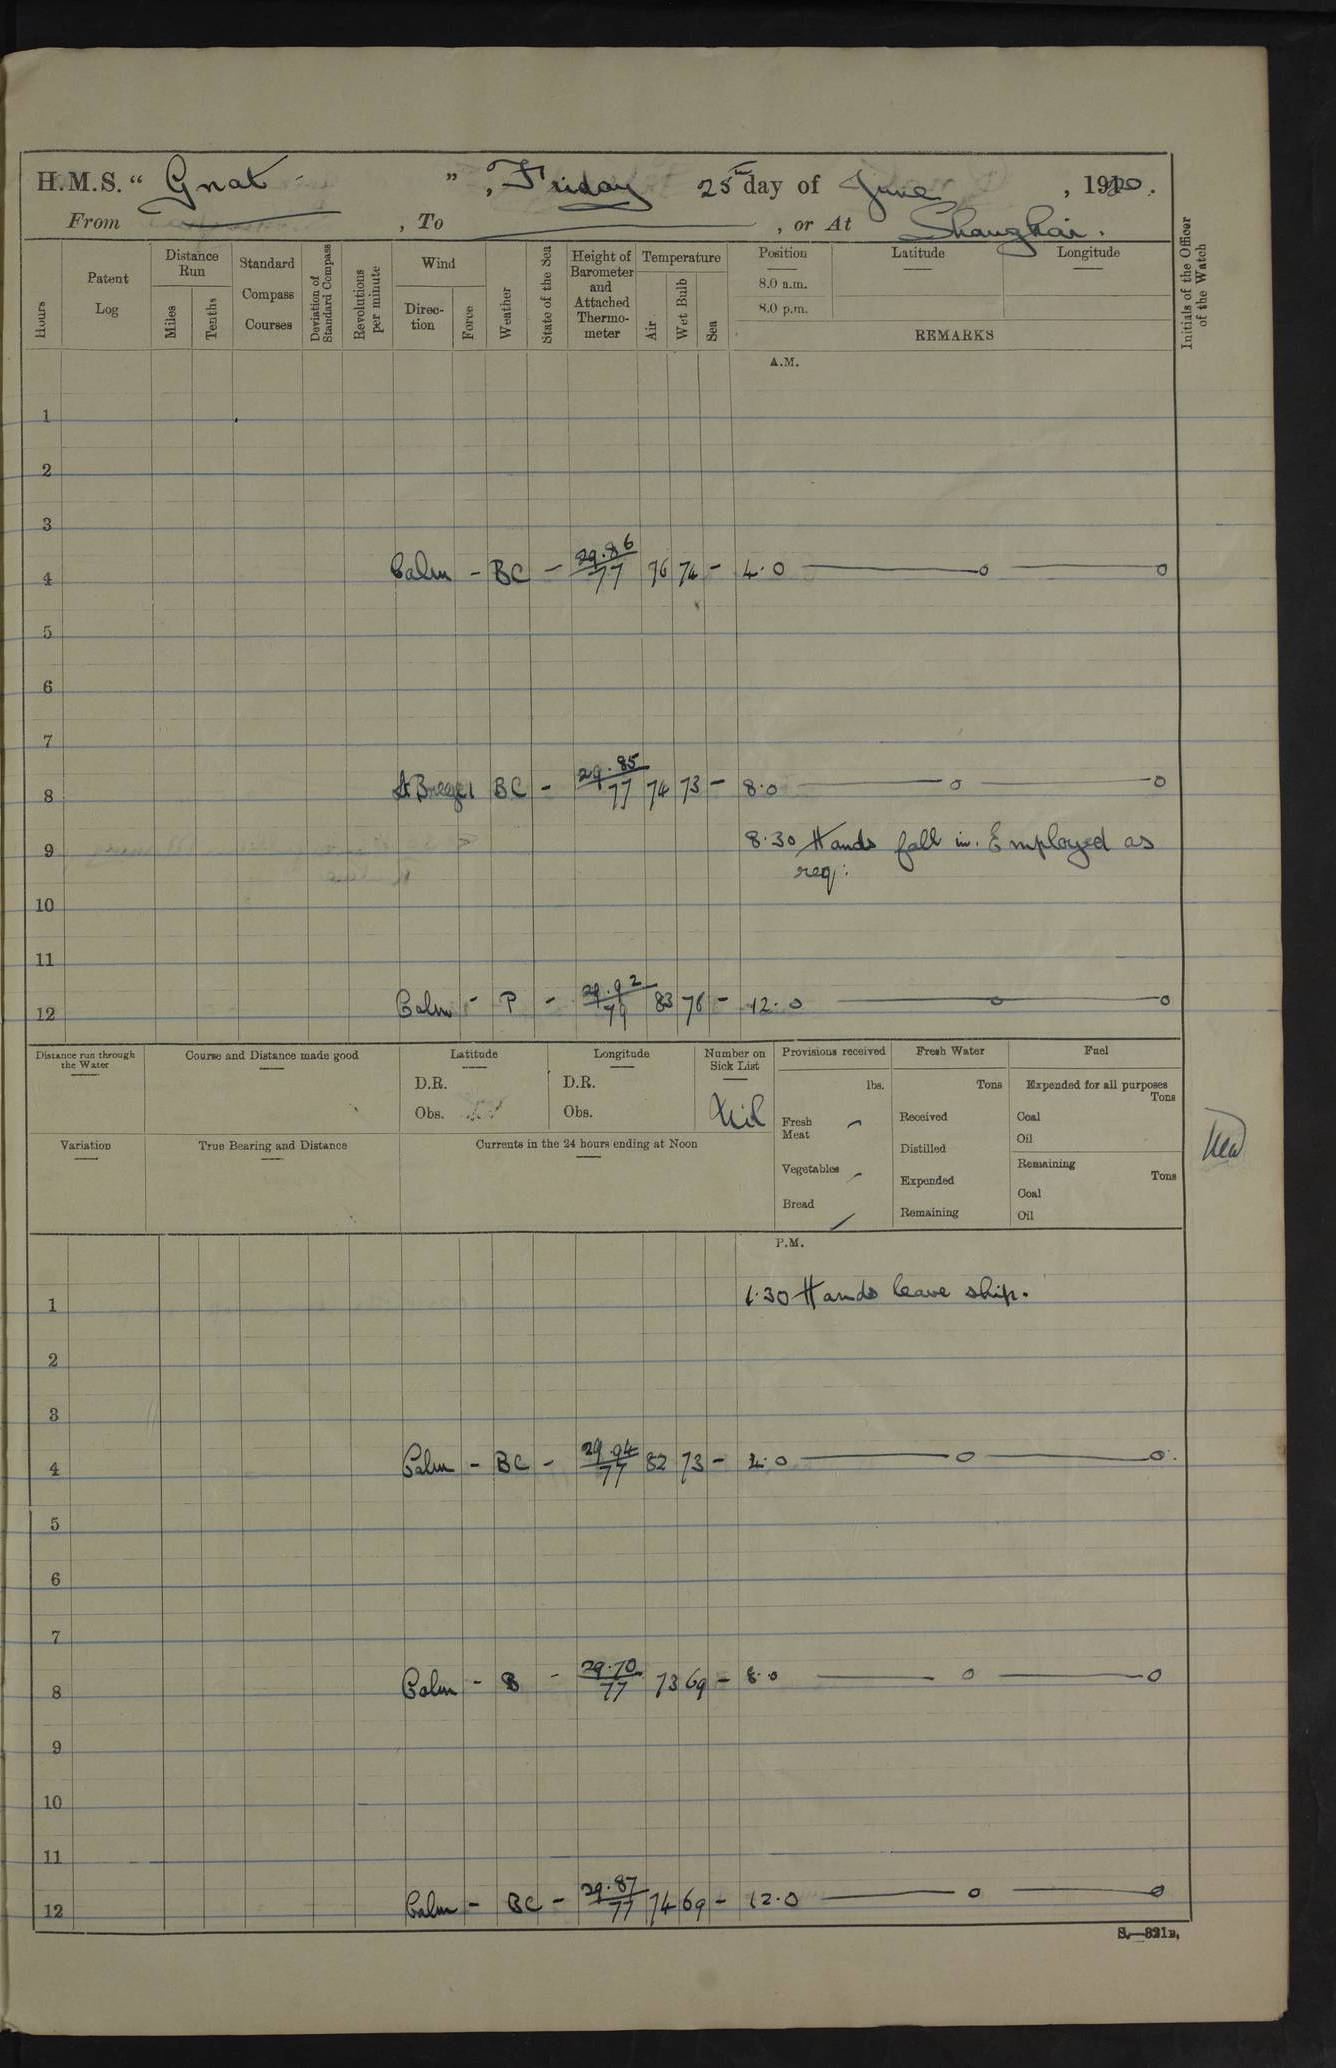 H.M.S. “ Gnat ” , Friday 25th day of June , 1920.
From , To , or At Shanghai.
Hours
Patent Log
Distance Run
Miles
Tenths
Standard Compass Courses
Deviation of Standard Compass
Revolutions per minute
Wind
Direc-tion
Force
Weather
State of the Sea
Height of Barometer and Attached Thermo-meter
Temperature
Air
Wet Bulb
Sea
Position
8.0 a.m.
8.0 p.m.
Latitude
Longitude
REMARKS
Initials of the Officer of the Watch
A.M.
1
2
3
4 Calm - BC - 29.86/77 76 74 - 4.0 —o —o
5
6
7
8 Lt Breeze 1 BC - 29.85/77 74 73 - 8.0 —o —o
9 8.30 Hands fall in. Employed as
req:
10
11
12 Calm - P - 29.92/79 83 76 - 12.0 —o —o
Distance run through the Water
Course and Distance made good
Latitude
D.R.
Obs.
Longitude
D.R.
Obs.
Number on Sick List
Nil
Provisions received
lbs.
Fresh Meat -
Vegetables -
Bread -
Fresh Water
Tons
Received
Distilled
Expended
Remaining
Fuel
Expended for all purposes
Tons
Coal
Oil
Remaining
Tons
Coal
Oil
Variation
True Bearing and Distance
Currents in the 24 hours ending at Noon
P.M.
1 1.30 Hands leave ship.
2
3
4 Calm - BC - 29.94/77 82 73 - 4.0 —o —o
5
6
7
8 Calm - B - 29.70/77 73 69 - 8.0 —o —o
9
10
11
12 Calm - BC - 29.87/77 74 69 - 12.0 —o —o
S.—321B.